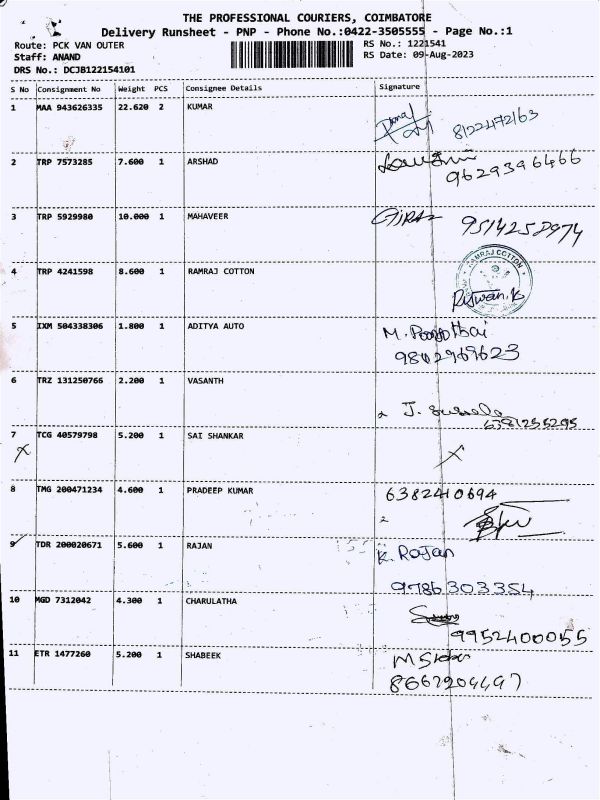 THE PROFESSIONAL COURIERS, COIMBATORE
Delivery Runsheet - PNP - Phone No.:0422-3505555 - Page No.:1
Route: PCK VAN OUTER RS No.: 1221541
Staff: ANAND RS Date: 09-Aug-2023
DRS No.: DCJB122154101
S No Consignment No Weight PCS Consignee Details Signature
1 MAA 943626335 22.620 2 KUMAR
8122472163
2 TRP 7573285 7.600 1 ARSHAD
9629396466
3 TRP 5929980 10.000 1 MAHAVEER
4 TRP 4241598 8.600 1 RAMRAJ COTTON
RAMRAJ COTTON
Riswan.k
5 IXM 504338306 1.800 1 ADITYA AUTO
M.
6 TRZ 131250766 2.200 1 VASANTH
J.
6381255295
7 TCG 40579798 5.200 1 SAI SHANKAR
X X
8 TMG 200471234 4.600 1 PRADEEP KUMAR
6382410694
9 TDR 200020671 5.600 1 RAJAN
K. Rajan
9786303354
10 MGD 7312042 4.300 1 CHARULATHA
9952400055
11 ETR 1477260 5.200 1 SHABEEK